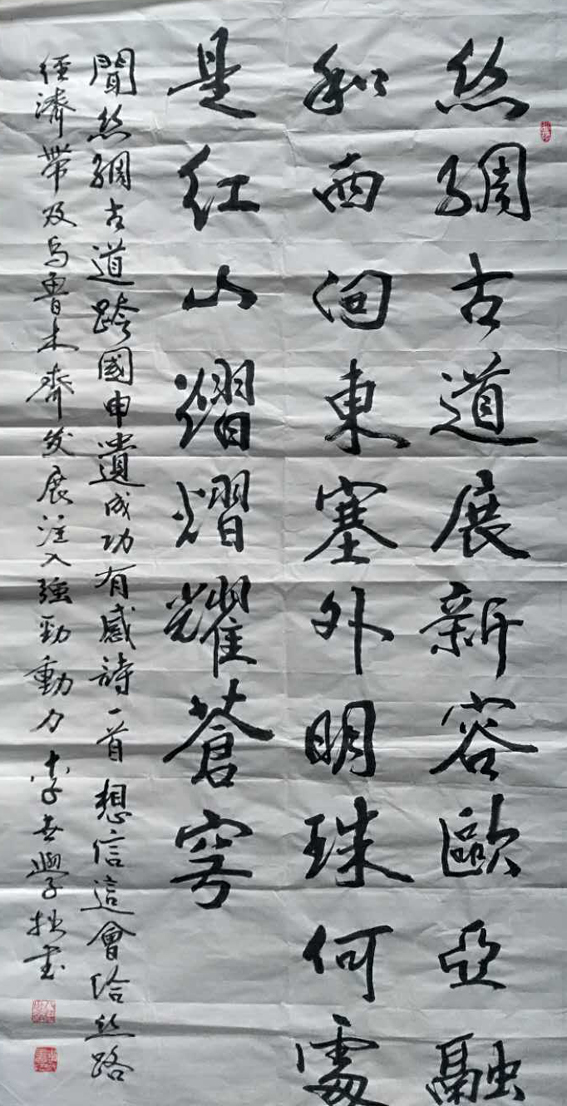 絲綢古道展新容歐亞融
和西向東塞外明珠何處
是红山熠熠耀蒼穹
聞絲綢古道跨國申遺成功有感詩一首想信這會给丝路
經濟帶及烏魯木齊发展注入強勁動力李學拙書